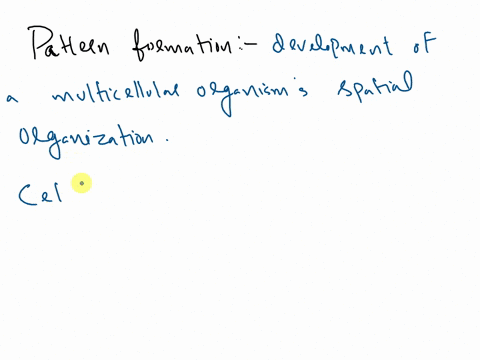 Pattern formation:- development of
a multicellular organism's spatial
organization.
Cel